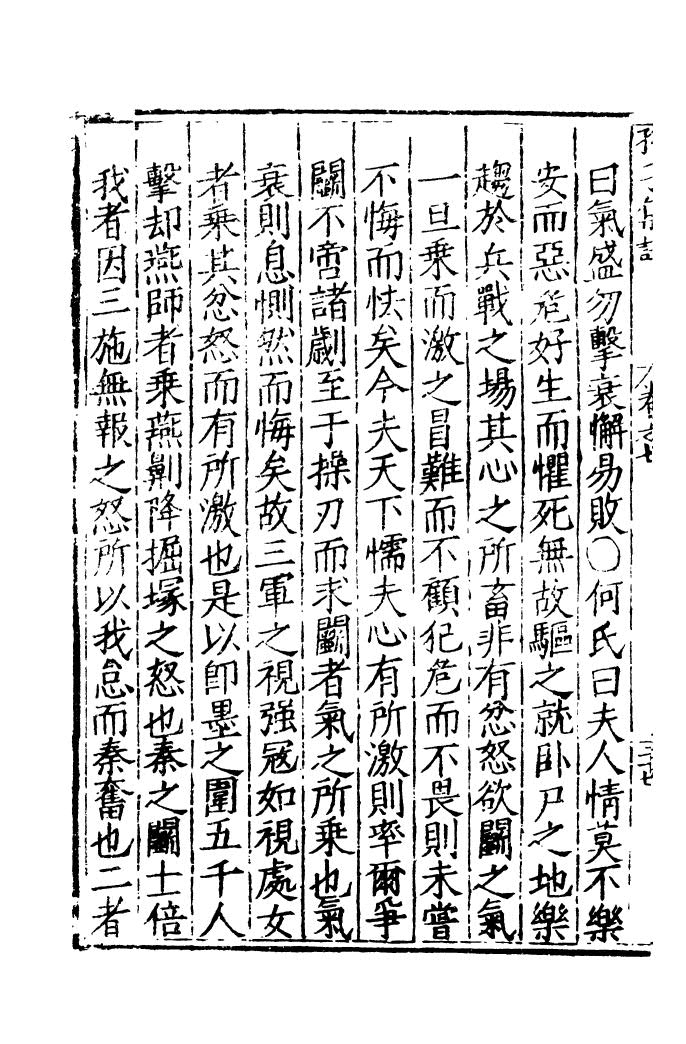 曰氣盛勿擊衰懈易敗〇何氏曰夫人情莫不樂
安而惡危好生而懼死無故驅之就卧尸之地樂
趨於兵戰之場其心之所畜非有忿怒欲鬬之氣
一旦乗而激之冒難而不顧犯危而不畏則未嘗
不悔而怯矣今夫天下懦夫心有所激則率爾爭
鬬不啻諸劌至于操刃而求鬬者氣之所乗也氣
衰則息惻然而悔矣故三軍之視強寇如視處女
者乗其忿怒而有所激也是以即墨之圍五千人
擊却燕師者乗燕劓降掘塚之怒也秦之鬬士倍
我者因三施無報之怒所以我怠而秦奮也二者